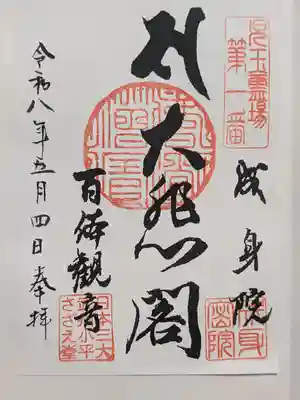 児玉霊場
第一番
成身院
大悲心閣
百体観音
日本三大
さざえ堂
令和八年五月四日奉拝